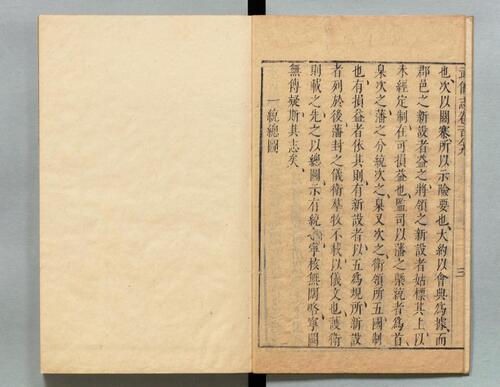 武備志卷一百八九
也、次以關塞、所以示險要也、大約以會典爲據、而
郡邑之新設者益之、將領之新設者姑標其上、以
未經定制、在可損益也、監司以藩之槩統者爲首、
臬次之、藩之分統次之、臬又次之、衛領所五、國制
也、有損益者依其則、有新設者以五爲規、所新設
者列於後、藩封之儀衛羣牧不載、以儀文也、護衛
則載之、先之以總圖、示有統、寧核無濶畧、寧闕
無傳疑、斯其志矣、
一統總圖
三